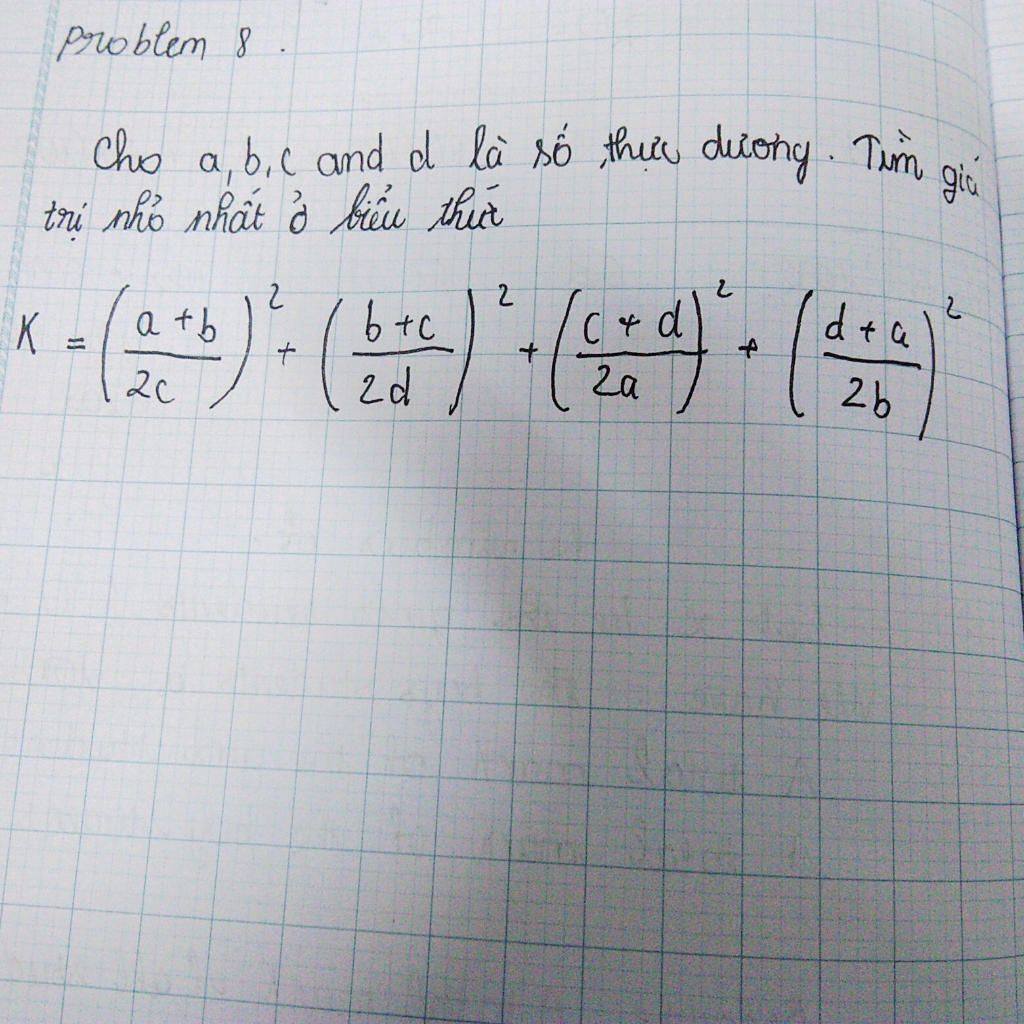 Problem 8.
Cho a, b, c and d là số thực dương. Tìm giá
trị nhỏ nhất ở biểu thức
K = ((a+b)/(2c))² + ((b+c)/(2d))² + ((c+d)/(2a))² + ((d+a)/(2b))²